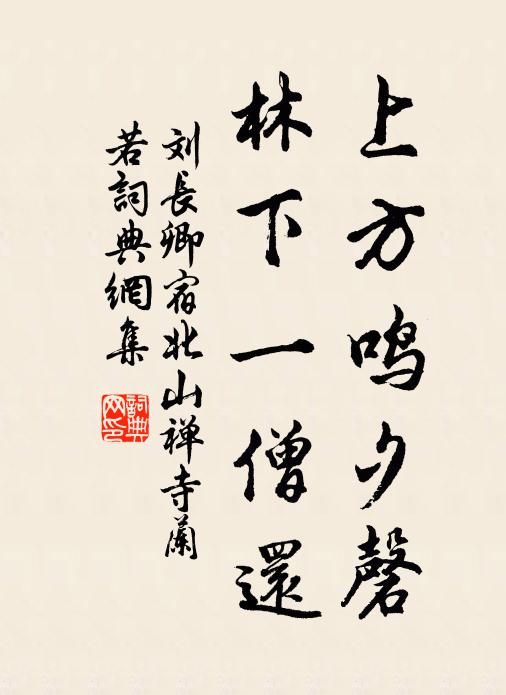 上方鸣夕磬
林下一僧還
刘長卿宿北山禅寺蘭
若詞典網集
詞典
网印